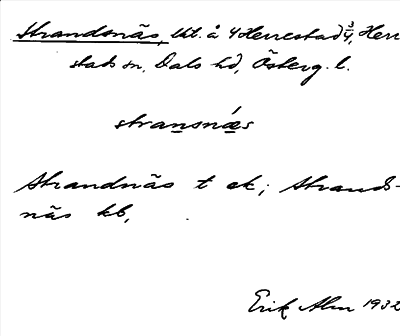 Strandsnäs, lht. å 4 Herrestad 3/4, Herr
stads sn, Dals hd, Österg. l.
stransnǽs
Strandnäs t ek; Strands-
näs kb,
Erik Alm 1932